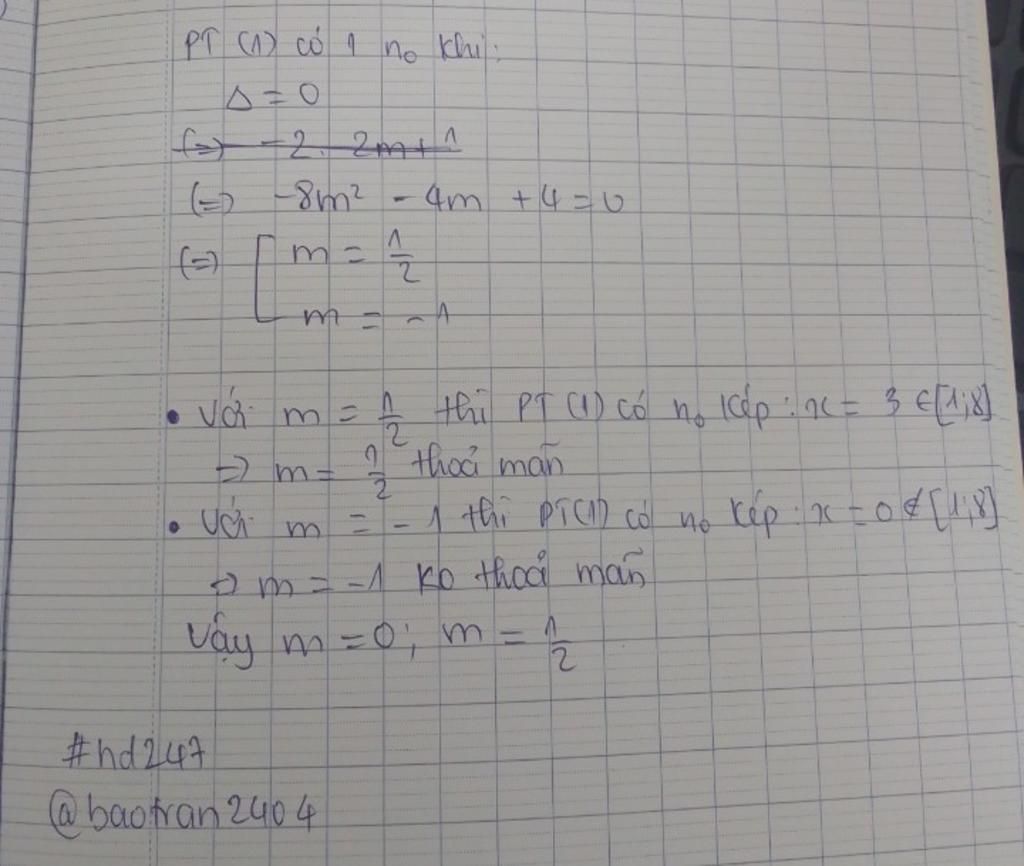 PT (1) có 1 no khi:
Δ = 0
(=) -2. 2m + 1
(=) -8m² - 4m + 4 = 0
(=) [ m = 1/2
m = -1
• Với m = 1/2 thì PT (1) có no kép : x = 3 ∈ [1;8]
=> m = 1/2 thoả mãn
• Với m = -1 thì PT(1) có no kép : x = 0 ∉ [1;8]
=> m = -1 ko thoả mãn
Vậy m = 0 ; m = 1/2
#hd247
@baotran2404